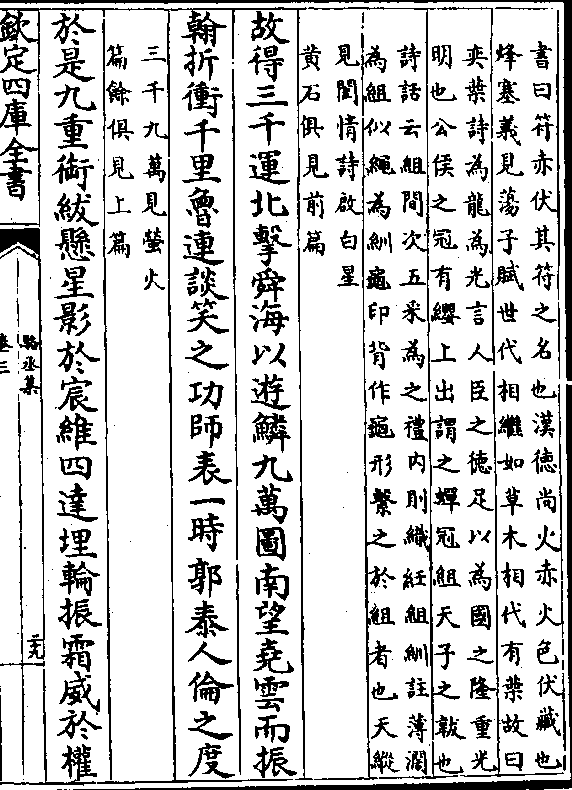 書曰符赤伏其符之名也漢德尚火赤火色伏藏也
烽塞義見蕩子賦世代相繼如草木相代有葉故曰
奕葉詩為龍為光言人臣之徳足以為國之隆重光
明也公侯之冠有纓上出謂之蟬冠組天子之韍也
詩話云組間次五采為之禮内則織紝組紃註薄濶
為組似繩為紃龜印背作龜形繫之於組者也天縱
見閨情詩啟白星
黄石俱見前篇
故得三千運北擊舜海以遊鱗九萬圖南望堯雲而振
翰折衝千里魯連談笑之功師表一時郭泰人倫之度
三千九萬見螢火
篇餘俱見上篇
於是九重銜綍懸星影於宸維四達埋輪振霜威於權
欽定四庫全書
駱丞集
卷三
二九